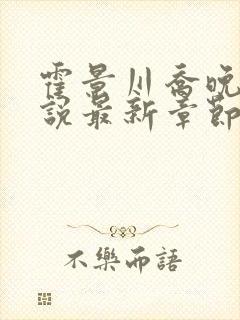 霍景川喬晚
說最新章節
不樂而語